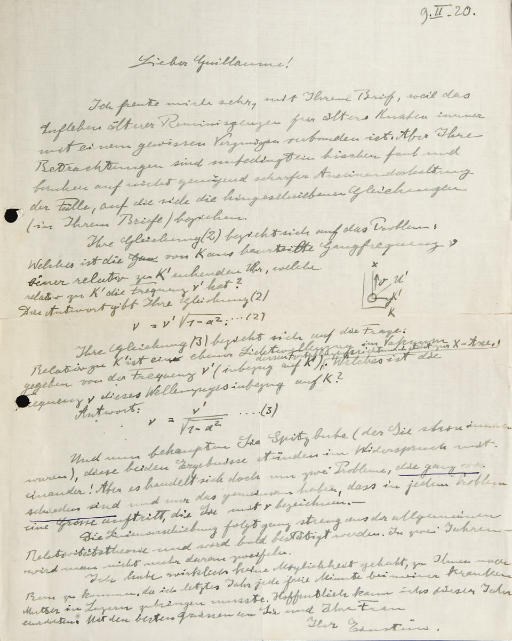 9.II.20.
Lieber Guillaume!
Ich freute mich sehr, mit Ihrem Brief, weil das
Aufleben älterer Reminiszenzen für ältere Knaben immer
mit einem gewissen Vergnügen verbunden ist. Aber Ihre
Betrachtungen sind unbedingt ein bischen faul und
beruhen auf nicht genügend scharfer Auseinanderhaltung
der Fälle, auf die sich die hingeschriebenen Gleichungen
(in Ihrem Briefe) beziehen.
Ihre Gleichung (2) bezieht sich auf das Problem:
Welches ist die von K aus beurteilte Gangfrequenz ν
einer relativ zu K' ruhenden Uhr, welche
relativ zu K' die Frequenz ν' hat?
Die Antwort gibt Ihre Gleichung (2)
ν = ν' √1-α² ... (2)
x
v K'
K
Ihre Gleichung (3) bezieht sich auf die Frage:
Relativ zu K' ist ein ebener Lichtwellenzug
gegeben von der Frequenz ν' (inbezug auf K'). Welches ist die
Frequenz ν dieses Wellenzuges inbezug auf K?
Antwort:
ν = ν' / √1-α² .... (3)
Und nun behaupten Sie Spitzbube (der Sie schon immer
waren), diese beiden Ergebnisse stünden im Widerspruch mit-
einander! Aber es handelt sich doch um zwei Probleme, die ganz ver-
schieden sind und nur das gemeinsam haben, dass in jedem Problem
eine Grösse auftritt, die Sie mit ν bezeichnen. —
Die Linienverschiebung folgt ganz streng aus der allgemeinen
Relativitätstheorie und wird bald bestätigt werden. In zwei Jahren
wird man nicht mehr daran zweifeln.
Ich habe wirklich keine Möglichkeit gehabt, zu Ihnen nach
Bern zu kommen, da ich letztes Jahr jede freie Minute bei meiner kranken
Mutter in Luzern zubringen musste. Hoffentlich kann ichs dieses Jahr
Mit den besten Grüssen an Sie und Ihre Frau
Ihr Einstein.